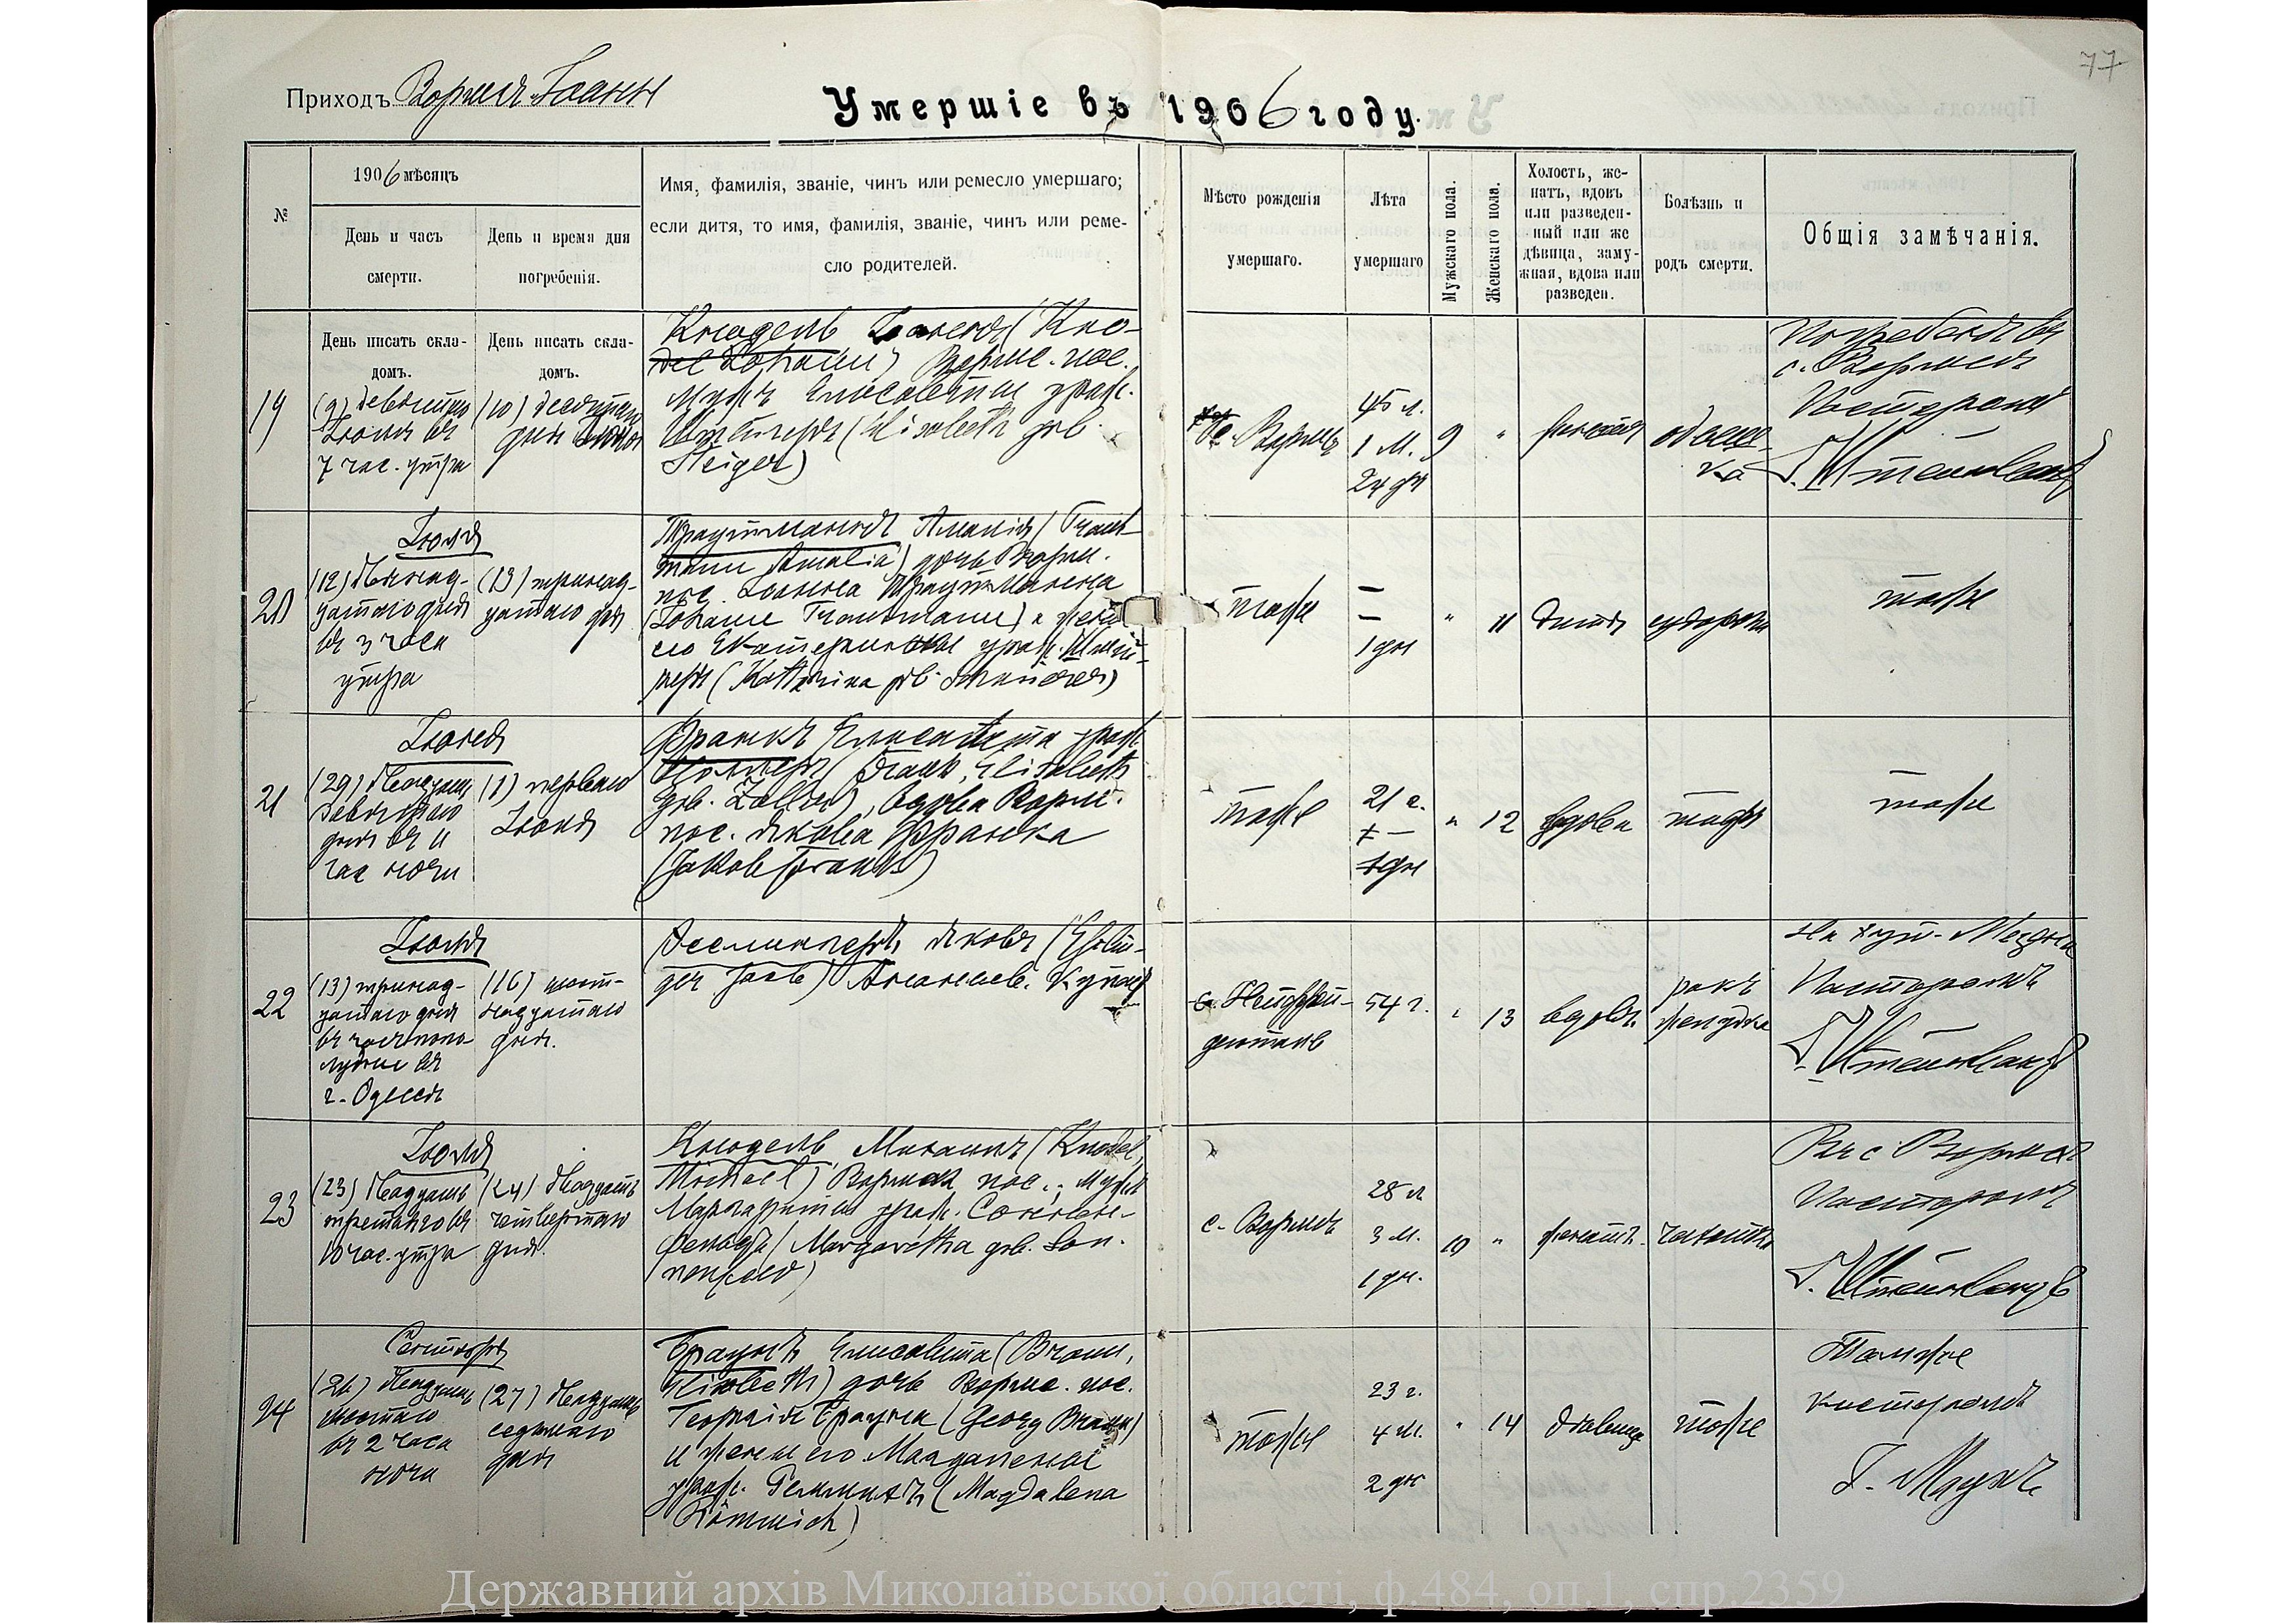 77
Приходъ Вормсъ-Іоанн
Умершіе въ 1906 году.
№
1906 мѣсяцъ
День и часъ
смерти.
День и время дня
погребенія.
Имя, фамилія, званіе, чинъ или ремесло умершаго;
если дитя, то имя, фамилія, званіе, чинъ или реме-
сло родителей.
Мѣсто рожденія
умершаго.
Лѣта
умершаго
Мужскаго пола.
Женскаго пола.
Холостъ, же-
натъ, вдовъ
или разведен-
ный или же
дѣвица, заму-
жняя, вдова или
разведен.
Болѣзнь и
родъ смерти.
Общія замѣчанія.
День писать скла-
домъ.
День писать скла-
домъ.
19
(9) девятаго
Іюня въ
7 час. утра
(10) десятаго
дня
Кнодель Іоаннъ (Kno-
del Johann) Вормс. пос.
мужъ Елисаветы урож.
Штейгеръ (Elisabeth geb.
Steiger)
с. Вормсъ
45 л.
1 м.
24 дн
9
"
женатъ
Погребенъ въ
с. Вормсѣ
Пасторомъ
20
Іюля
(12) двѣнад-
цатаго дня
въ 3 часа
утра
(13) тринад-
цатаго дня
Траутманнъ Амалія (Traut-
mann Amalia) дочь Вормс.
пос. Іоанна Траутманна
(Johann Trautmann) и жены
его Екатерины урож. Шней-
деръ (Katharina geb. Schneider)
тоже
—
—
1 дн
"
11
дитя
судороги
тоже
21
Іюня
(29) двадцать
девятаго
дня въ 11
час ночи
(1) перваго
Іюля
Франкъ Елисавета урож.
Цоллеръ (Frank, Elisabeth
geb. Zoller), вдова Вормс.
пос. Якова Франка
(Jakob Frank)
тоже
21 г.
"
12
вдова
тоже
тоже
22
Іюля
(13) тринад-
цатаго дня
въ часъ попо-
лудни въ
г. Одессѣ
(16) шест-
надцатаго
дня.
Эсслингеръ Яковъ (Esslin-
ger Jakob) Ананьев. Купецъ
с. Нейфрей-
денталь
54 г.
"
13
вдовъ.
ракъ
желудка
Пасторомъ
23
Іюля
(23) двадцать
третьяго въ
10 час. утра
(24) двадцать
четвертаго
дня.
Кнодель, Михаилъ (Knodel,
Michael) Вормск пос., мужъ
Маргариты урож. Сонненъ-
фельдъ (Margaretha geb. Son-
nenfeld)
с. Вормсъ
28 л
3 м.
1 дн.
10
"
женатъ.
чахотка
Въ с. Вормсѣ
Пасторомъ
24
Сентября
(26) двадцать
шестаго
въ 2 часа
ночи
(27) двадцать
седьмаго
дня
Браунъ Елисавета (Braun,
Elisabeth) дочь Вормс. пос.
Георгія Брауна (Georg Braun)
и жены его Магдалены
урож. Реммихъ (Magdalena
Römmich)
тоже
23 г.
4 м.
2 дн
"
14
дѣвица
тоже
Тамже
Державний архів Миколаївської області, ф.484, оп.1, спр.2359